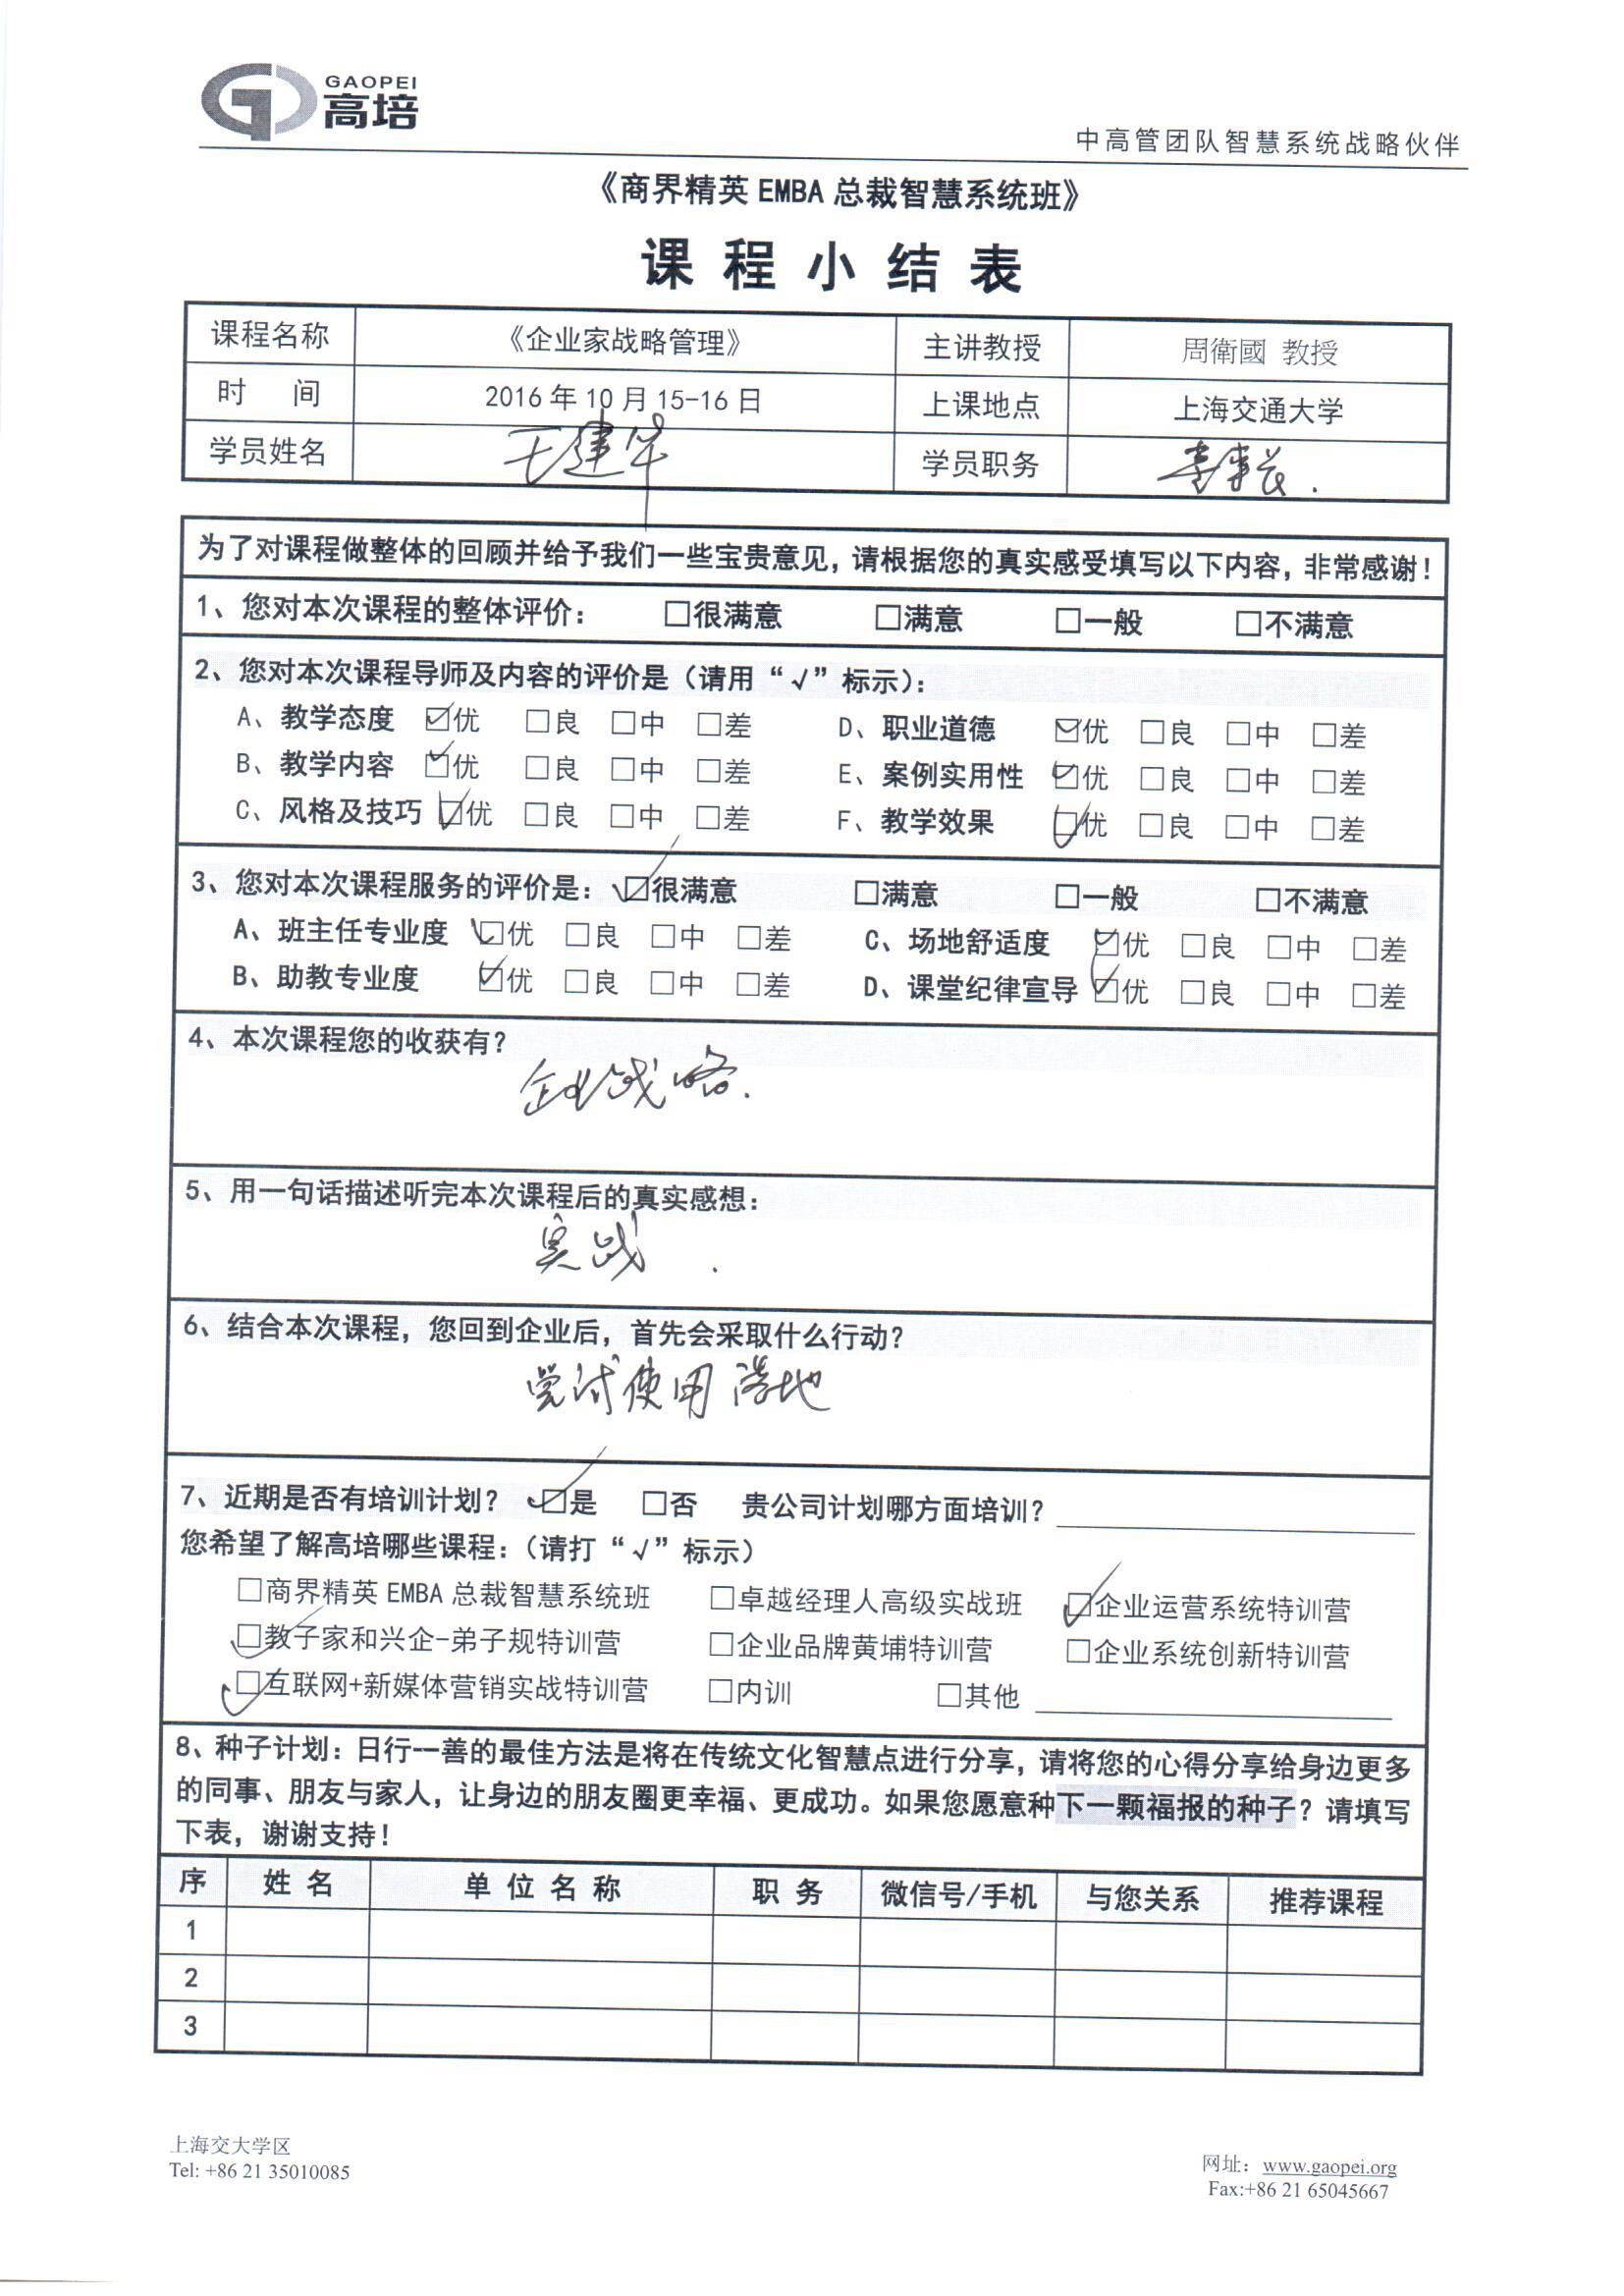 GAOPEI
高培
中高管团队智慧系统战略伙伴
《商界精英 EMBA 总裁智慧系统班》
课程小结表
课程名称 《企业家战略管理》 主讲教授 周衛國 教授
时 间 2016 年 10 月 15-16 日 上课地点 上海交通大学
学员姓名 王建华 学员职务
为了对课程做整体的回顾并给予我们一些宝贵意见，请根据您的真实感受填写以下内容，非常感谢！
1、您对本次课程的整体评价： □很满意 □满意 □一般 □不满意
2、您对本次课程导师及内容的评价是（请用“√”标示）：
A、教学态度 ☑优 □良 □中 □差 D、职业道德 ☑优 □良 □中 □差
B、教学内容 ☑优 □良 □中 □差 E、案例实用性 ☑优 □良 □中 □差
C、风格及技巧 ☑优 □良 □中 □差 F、教学效果 ☑优 □良 □中 □差
3、您对本次课程服务的评价是： ☑很满意 □满意 □一般 □不满意
A、班主任专业度 ☑优 □良 □中 □差 C、场地舒适度 ☑优 □良 □中 □差
B、助教专业度 ☑优 □良 □中 □差 D、课堂纪律宣导 ☑优 □良 □中 □差
4、本次课程您的收获有？
企业战略.
5、用一句话描述听完本次课程后的真实感想：
实战.
6、结合本次课程，您回到企业后，首先会采取什么行动？
尝试使用落地
7、近期是否有培训计划？ ☑是 □否 贵公司计划哪方面培训？
您希望了解高培哪些课程：（请打“√”标示）
□商界精英 EMBA 总裁智慧系统班 □卓越经理人高级实战班 ☑企业运营系统特训营
☑教子家和兴企-弟子规特训营 □企业品牌黄埔特训营 □企业系统创新特训营
☑互联网+新媒体营销实战特训营 □内训 □其他
8、种子计划：日行一善的最佳方法是将在传统文化智慧点进行分享，请将您的心得分享给身边更多
的同事、朋友与家人，让身边的朋友圈更幸福、更成功。如果您愿意种下一颗福报的种子？请填写
下表，谢谢支持！
序 姓 名 单 位 名 称 职 务 微信号/手机 与您关系 推荐课程
1
2
3
上海交大学区
Tel: +86 21 35010085
网址：www.gaopei.org
Fax:+86 21 65045667